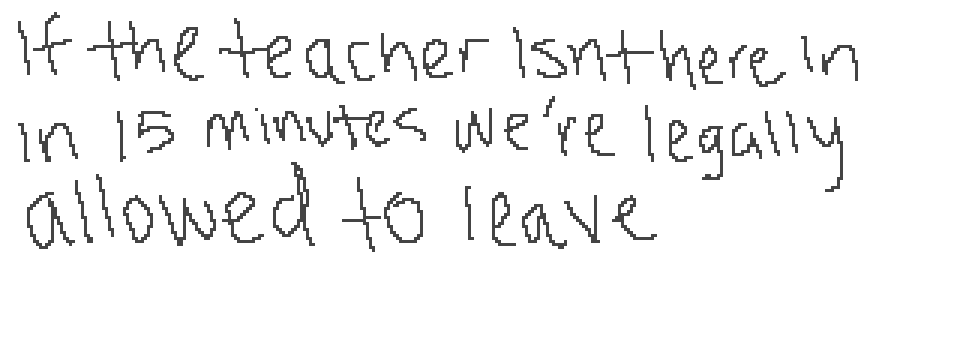 If the teacher isnt here in
in 15 minutes we're legally
allowed to leave